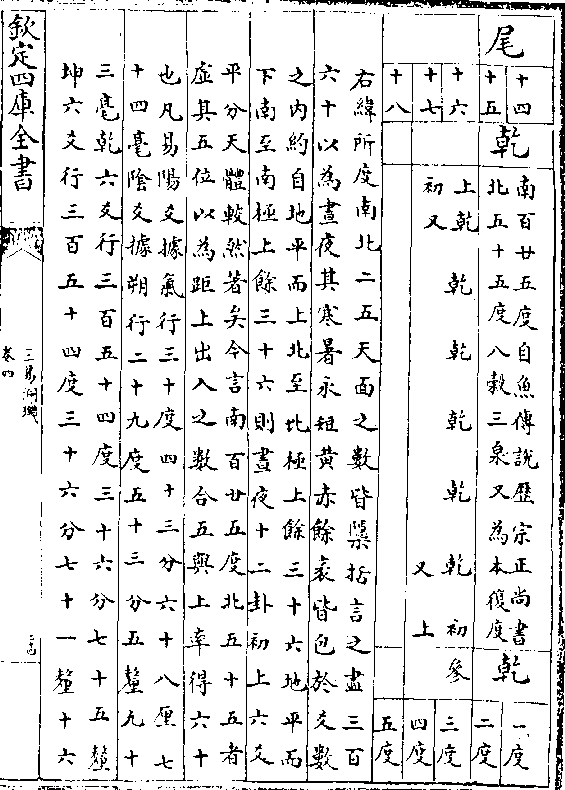 尾
十四
十五
十六
十七
十八
乾
南百廿五度自魚傳說歷宗正尚書
北五十五度八穀三泉又為本復度
上乾乾乾乾乾初
初又又上
乾
參
一度
二度
三度
四度
五度
右緯所度南北二五天面之數皆檃括言之盡三百
六十以為晝夜其寒暑永短黃赤餘衰皆包於爻數
之內約自地平而上北至北極上餘三十六地平而
下南至南極上餘三十六則晝夜十二卦初上六爻
平分天體較然著矣今言南百廿五度北五十五者
虛其五位以為距上出入之數合五與上率得六十
也凡易陽爻據氣行三十度四十三分六十八厘七
十四毫陰爻據朔行二十九度五十三分五釐九十
三毫乾六爻行三百五十四度三十六分七十五釐
坤六爻行三百五十四度三十六分七十一釐十六
欽定四庫全書
三易洞璣
卷四